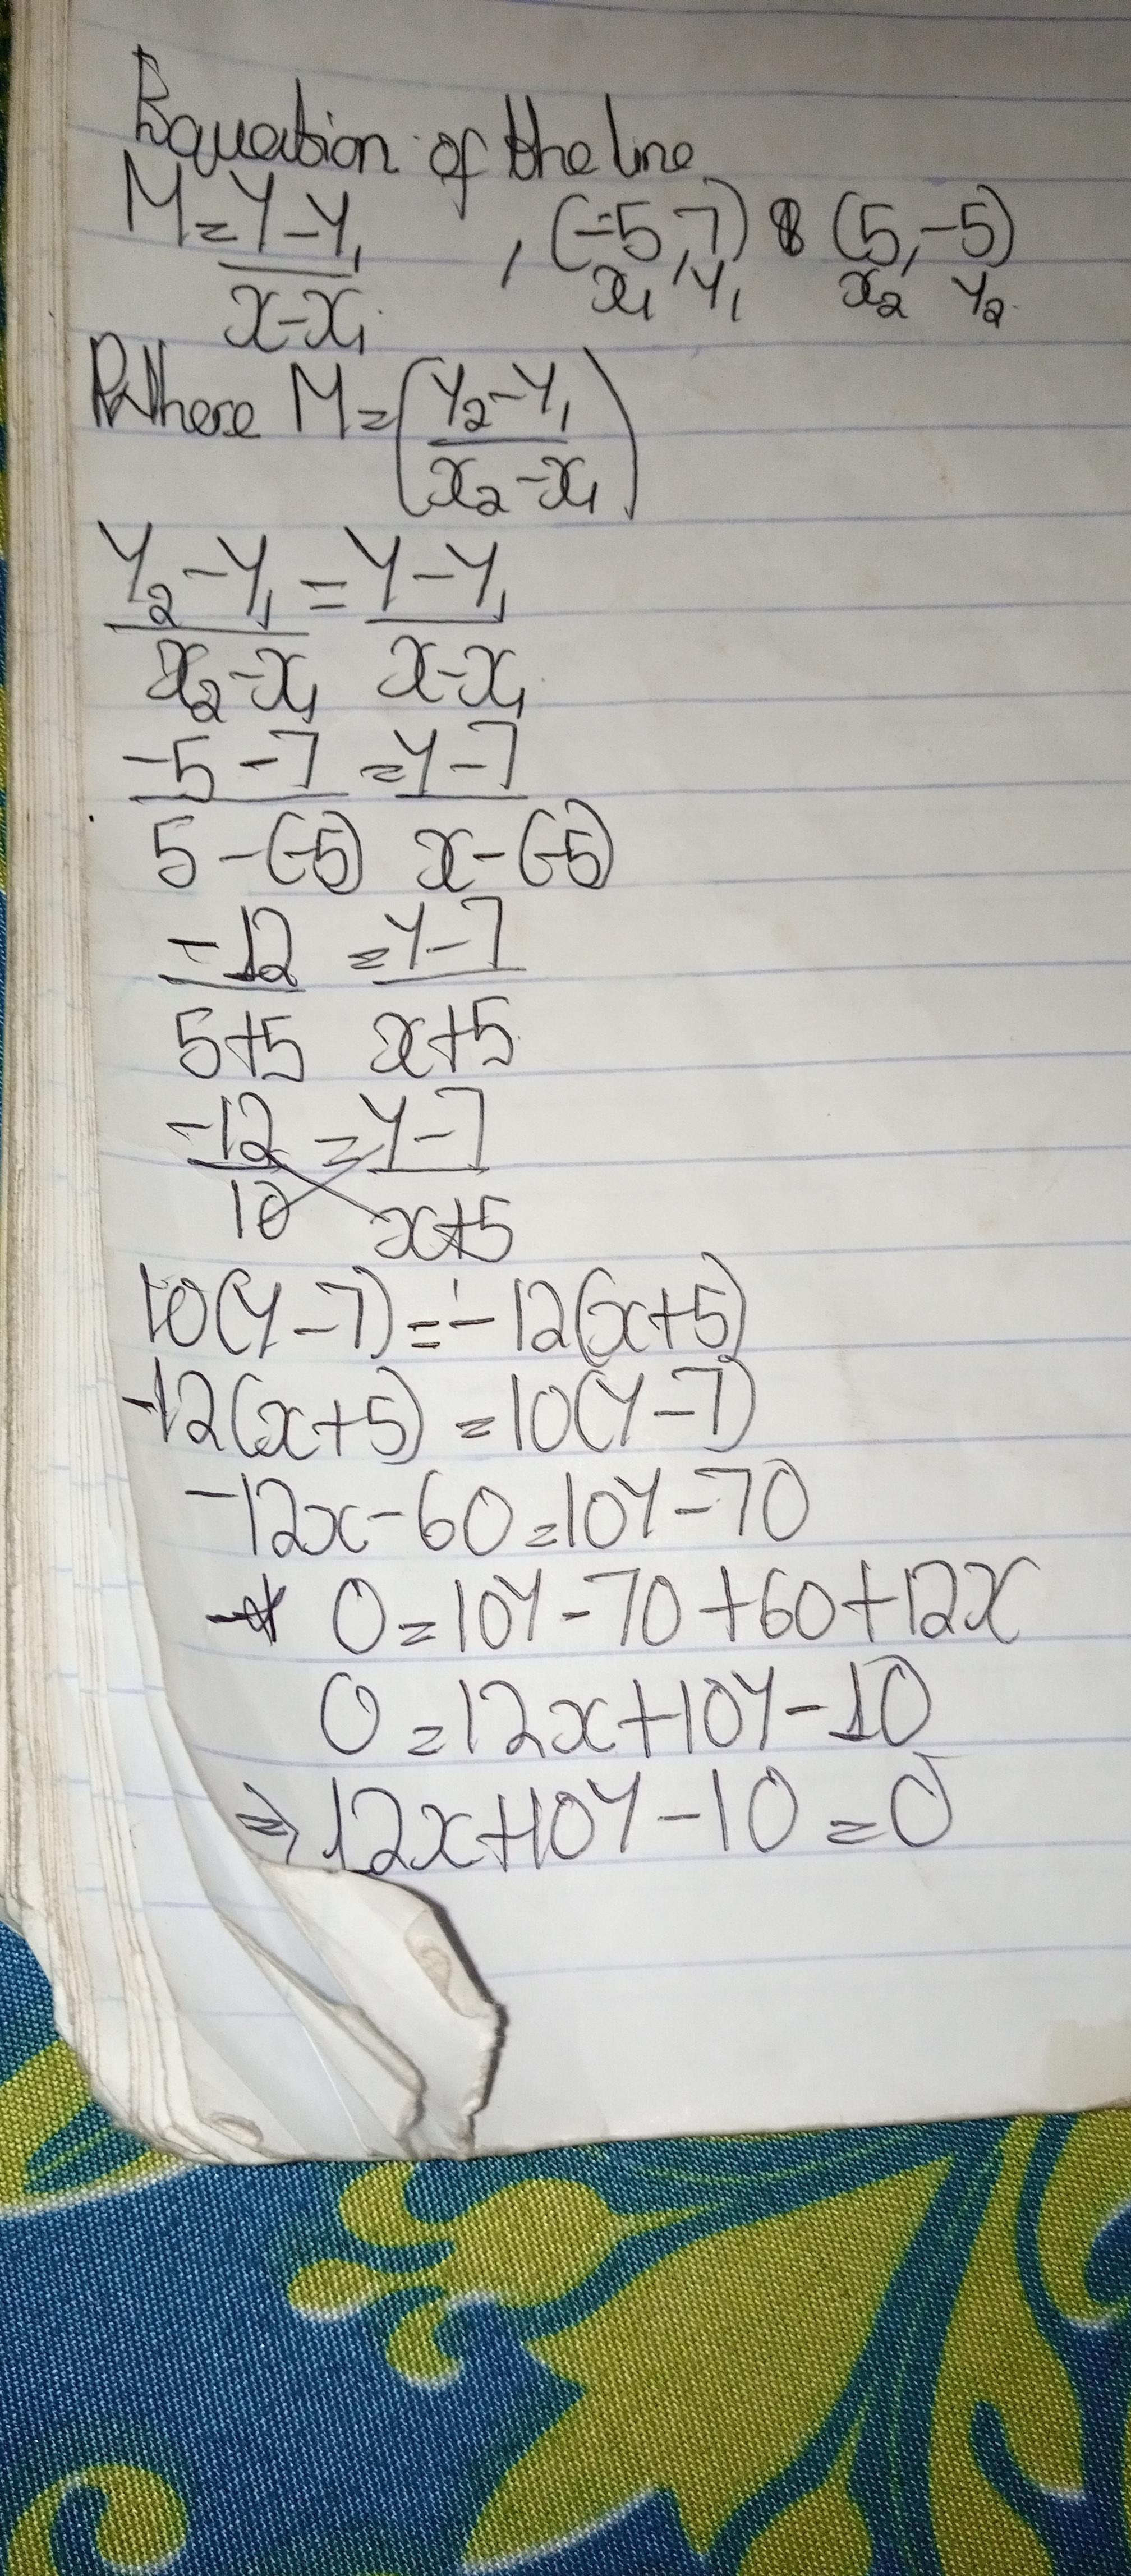 Equation of the line
M = Y - Y₁ / x - x₁ , (-5, 7) & (5, -5)
x₁ Y₁ x₂ Y₂
Where M = (Y₂ - Y₁ / x₂ - x₁)
Y₂ - Y₁ / x₂ - x₁ = Y - Y₁ / x - x₁
-5 - 7 / 5 - (-5) = Y - 7 / x - (-5)
-12 / 5+5 = Y - 7 / x+5
-12 / 10 = Y - 7 / x+5
10(Y - 7) = -12(x+5)
-12(x+5) = 10(Y - 7)
-12x - 60 = 10Y - 70
0 = 10Y - 70 + 60 + 12x
0 = 12x + 10Y - 10
⇒ 12x + 10Y - 10 = 0